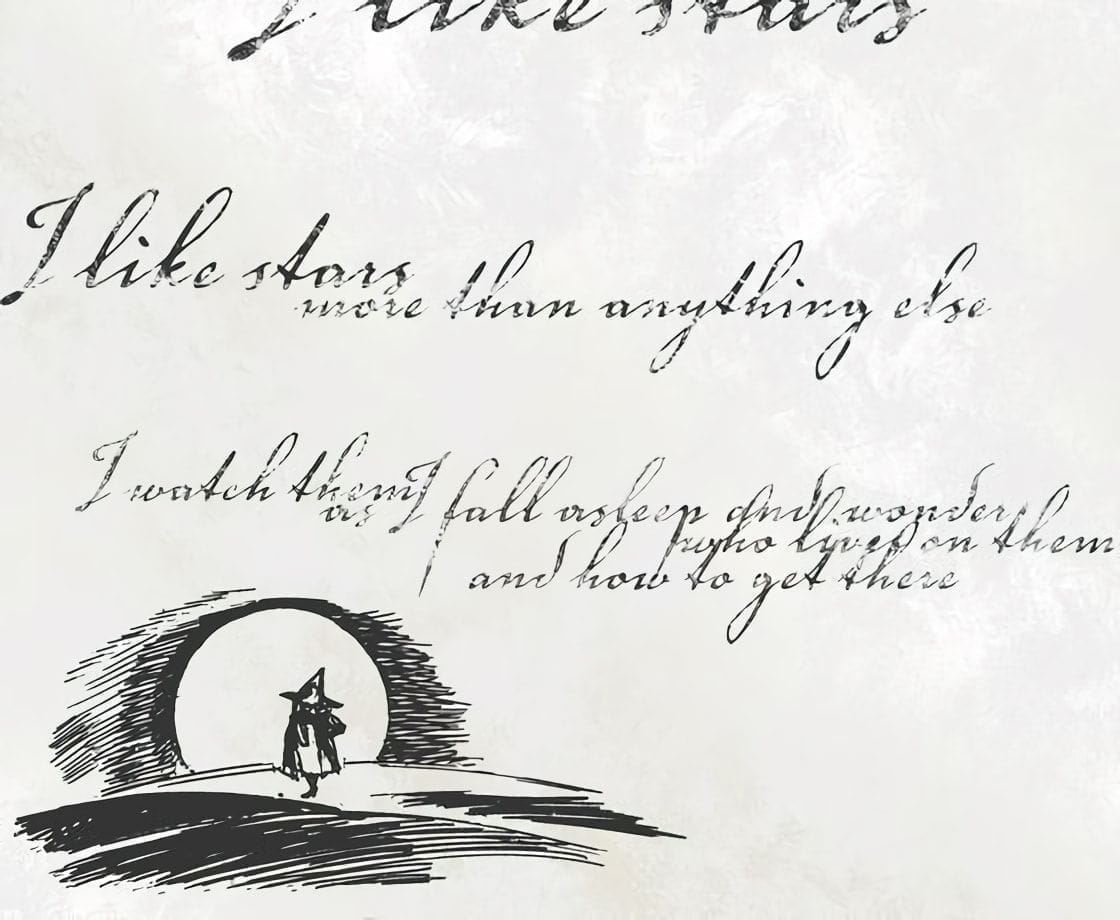 I like stars
I like stars
more than anything else
I watch them
as I fall asleep and wonder
who lives on them
and how to get there